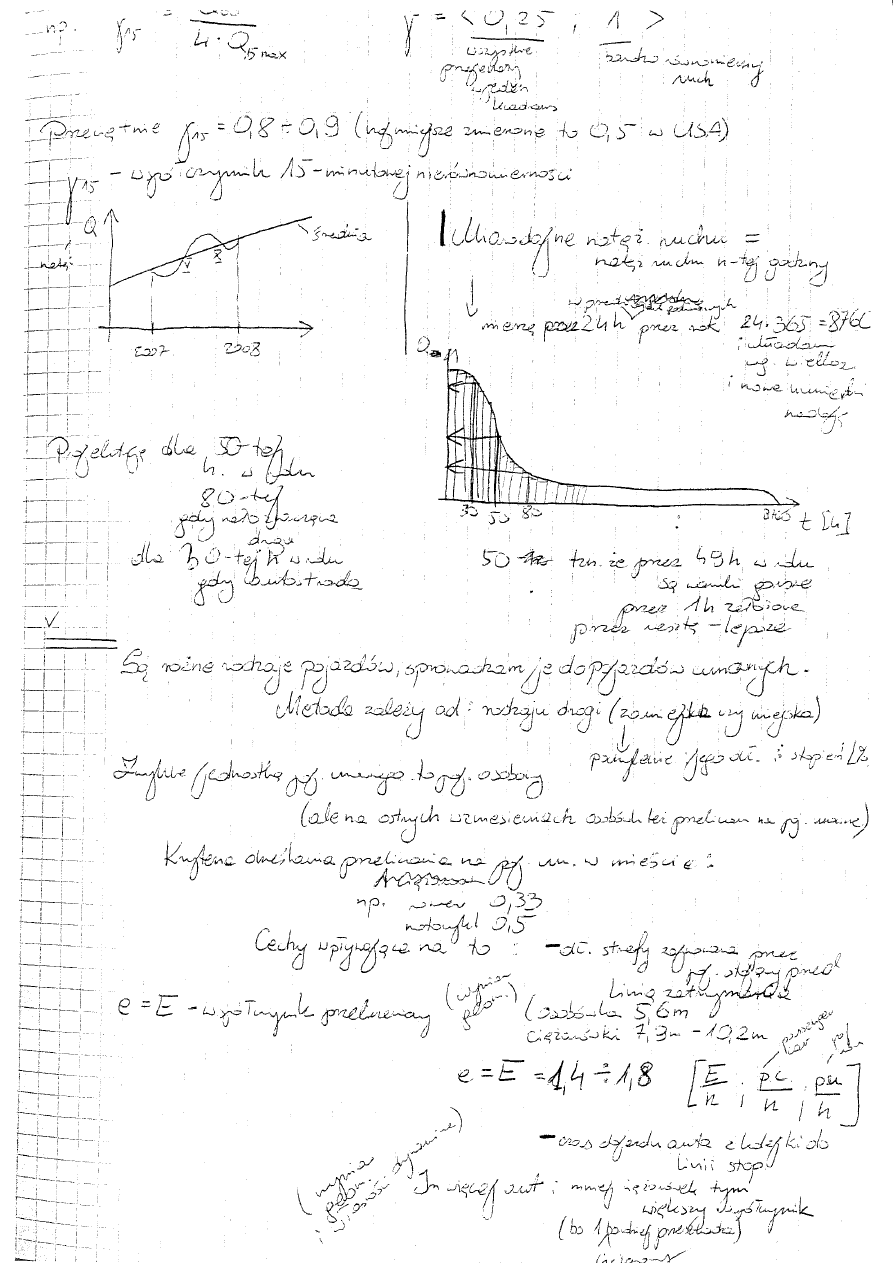 np. γ15 = / 4·Q15max
γ = < 0,25 ; 1 >
wszystkie
przejechały
w jeden
kwadrans
bardzo równomierny
ruch
Przeciętnie γ15 = 0,8 ÷ 0,9 (najmniejsze zmierzone to 0,5 w USA)
γ15 – współczynnik 15-minutowej nierównomierności
Q
natęż
średnia
V
X
2007
2008
Miarodajne natęż. ruchu =
natęż ruchu n-tej godziny
mierzę przez 24h przez rok 24·365 = 8760
i układam
wg. wielkoś.
i nowe numerki
nadaję
Q
30 50 80
8760 t [h]
Projektuję dla 50-tej
h. w roku
80-tej
gdy
droga
dla 30-tej h w roku
gdy autostrada
50 tzn. że przez 49h w roku
są warunki gorsze
przez 1h założone
przez resztę – lepsze
V
Są różne rodzaje pojazdów, sprowadzam je do pojazdów umownych.
Metoda zależy od: rodzaju drogi (zamiejska czy miejska)
pochylenie i jego dł. i stopień %
Zwykle jednostką poj. umownego to poj. osobowy
(ale na ostrych wzniesieniach osobówki też przeliczam na poj. umowne)
Kryteria określania przeliczania na poj. um. w mieście:
np. rower 0,33
motocykl 0,5
Cechy wpływające na to : – dł. strefy zajmowana przez
poj. stojący przed
linią zatrzymania
e = E – współczynnik przeliczeniowy (wpływ geom.) (osobówka 5,6m
ciężarówki 7,9m – 10,2m
e = E = 1,4 ÷ 1,8 [E/h ; p.c./h ; pu/h]
passenger
car
poj.
– czas dojazdu auta z kolejki do
linii stop.
(wpływ
geom.
i własności dynamiczne)
Im więcej aut i mniej ciężarówek tym
większy współczynnik
(bo 1 bardziej przeszkadza)